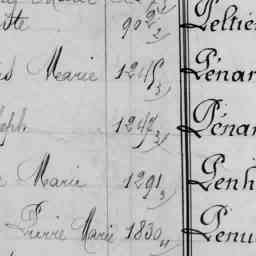 90 2 Peltie
s Marie 1245 3 Pénar
eph 1247 3 Pénar
Marie 1291 3 Penh
Pierre Marie 1830 11 Penu